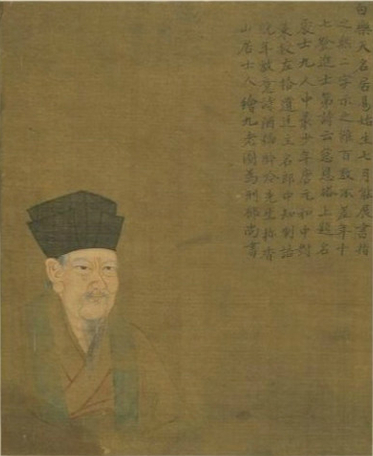 白樂天名居易始生七月能展書指
之無二字示之雖百數不差年十
七登進士第詩云慈恩塔上題名
處十九人中最少年唐元和中對
策授左拾遺遷主客郎中知制誥
晚年放意詩酒號醉吟先生稱香
山居士人繪九老圖為刑部尚書